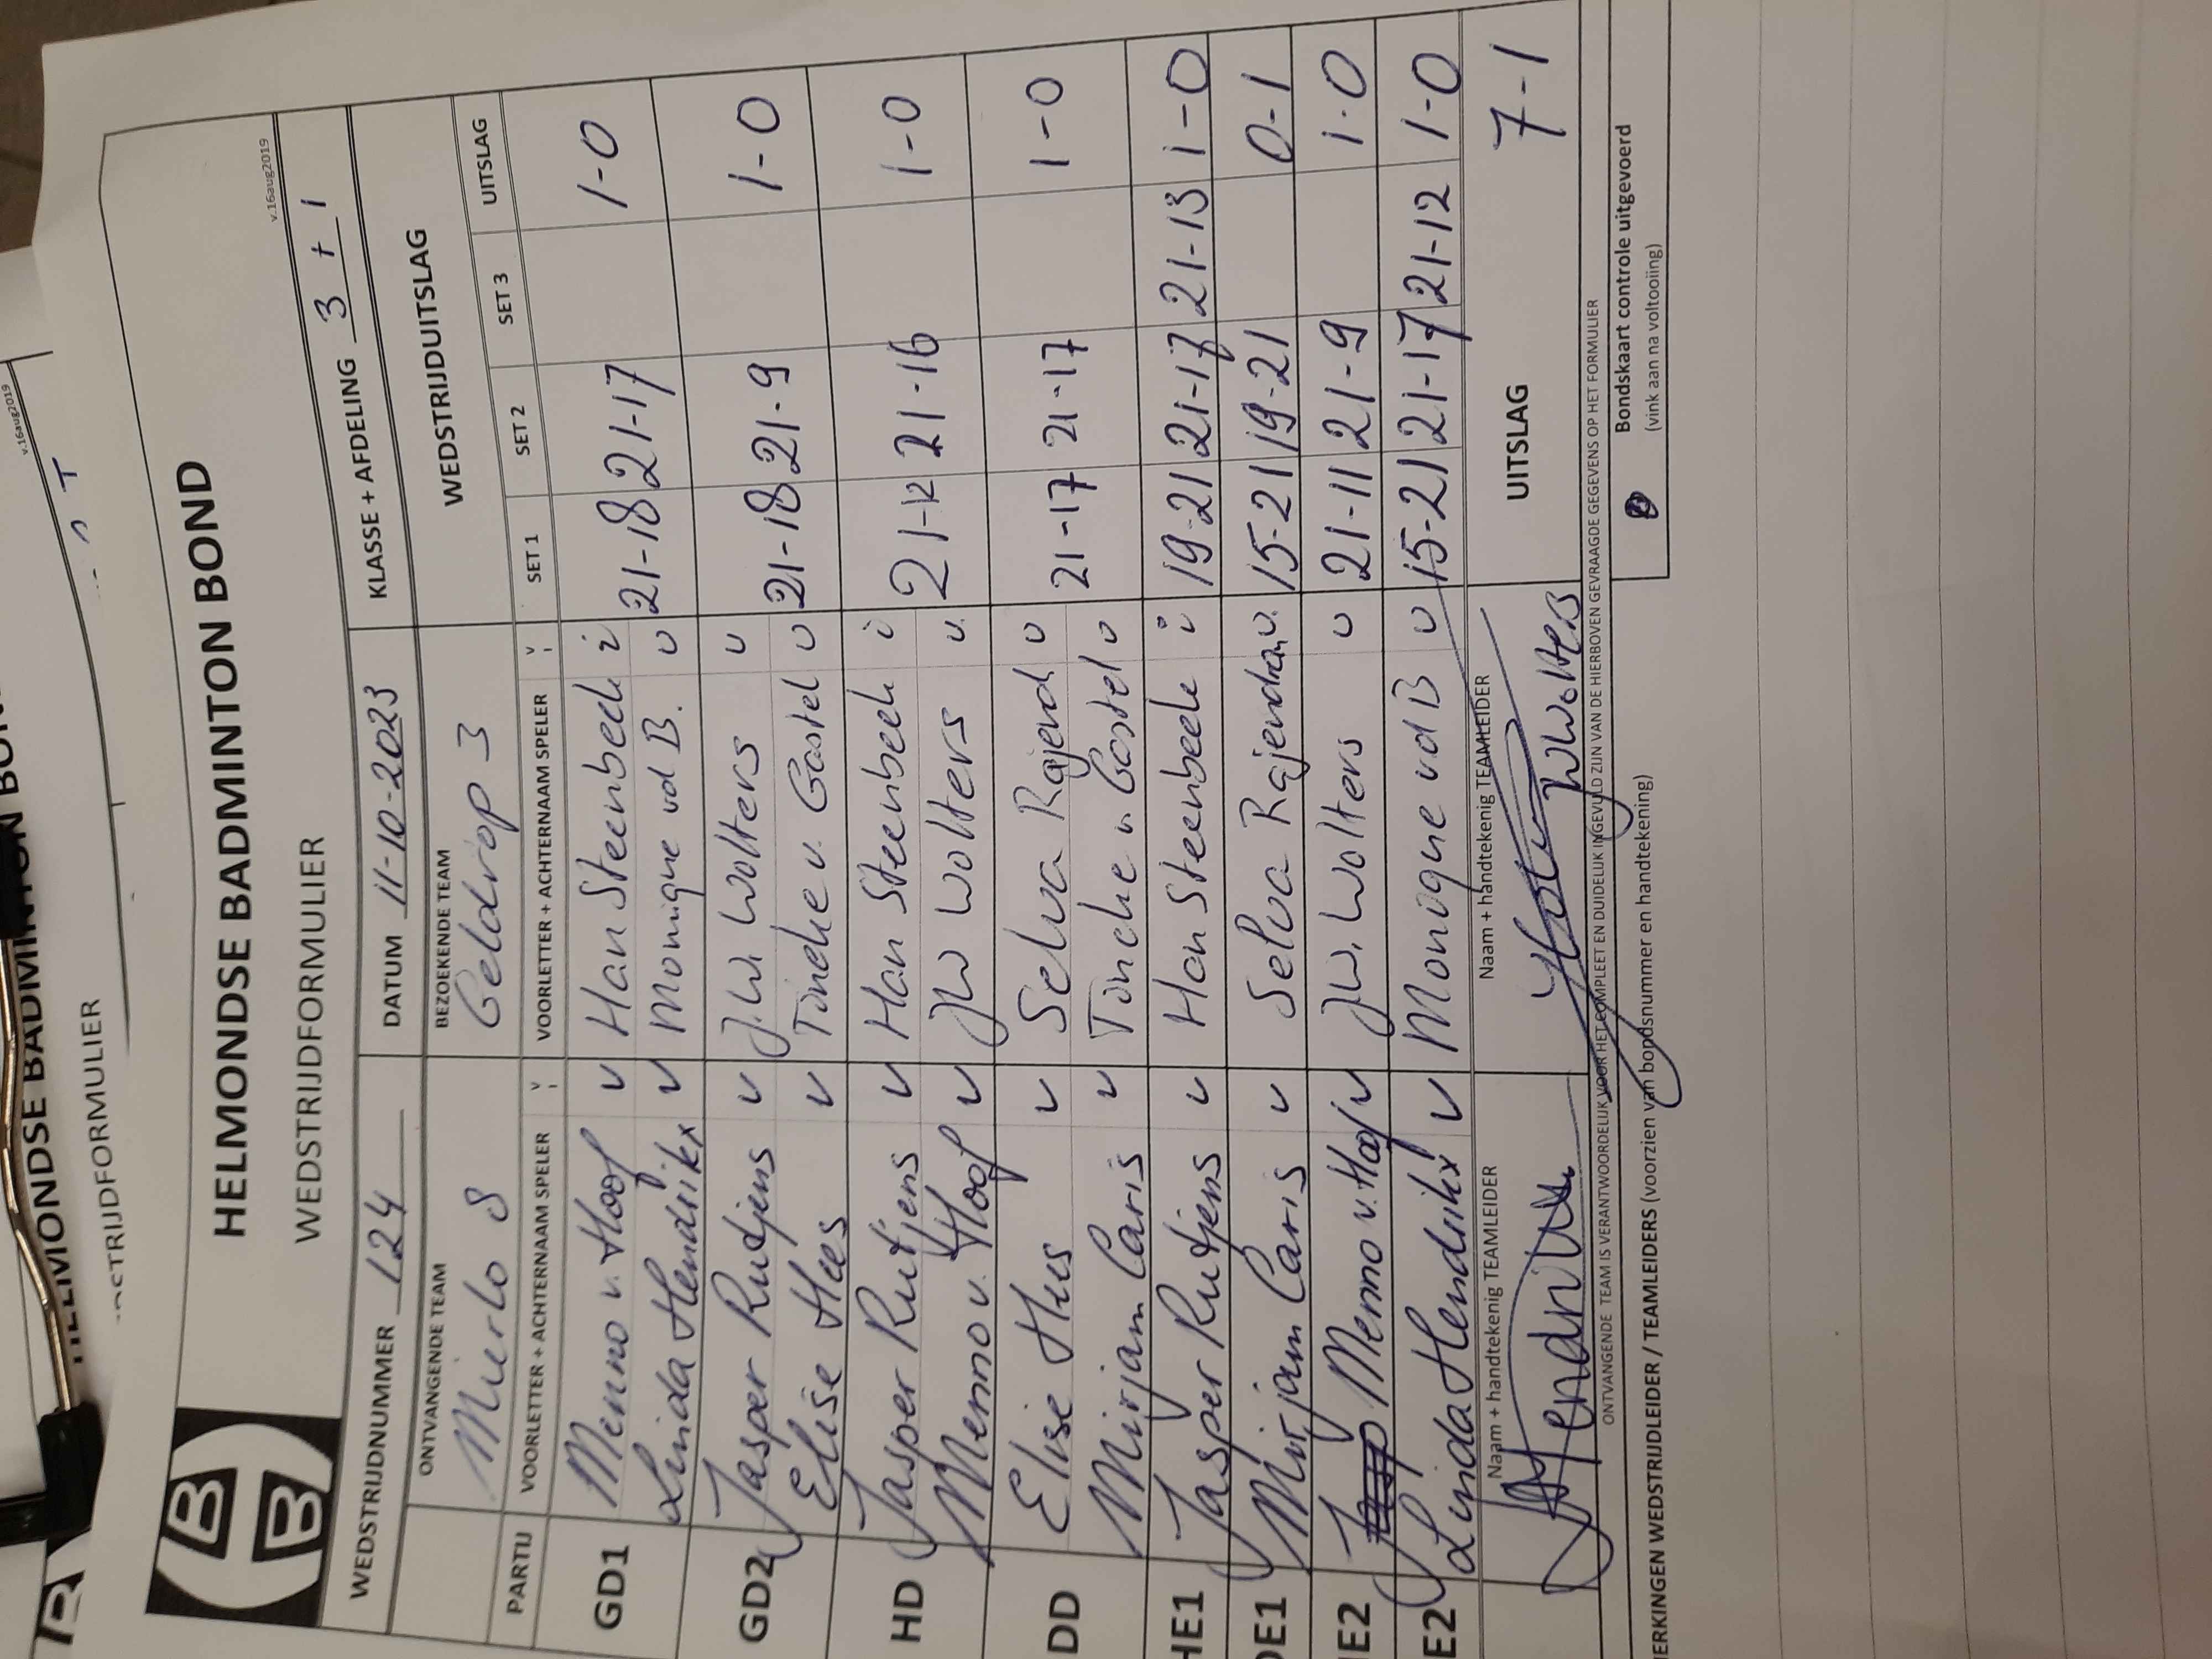 v.16aug2019
HELMONDSE BADMINTON BOND
WEDSTRIJDFORMULIER
B
B
HELMONDSE BADMINTON BOND
v.16aug2019
WEDSTRIJDFORMULIER
WEDSTRIJDNUMMER 124 DATUM 11-10-2023 KLASSE + AFDELING 3 + 1
ONTVANGENDE TEAM BEZOEKENDE TEAM WEDSTRIJDUITSLAG
Mierlo 8 Geldrop 3
PARTIJ VOORLETTER + ACHTERNAAM SPELER V VOORLETTER + ACHTERNAAM SPELER V SET 1 SET 2 SET 3 UITSLAG
GD1 Menno v. Hoof v Han Steenbeek v 21-18 21-17 1-0
Linda Hendrikx v Monique vd B. v
GD2 Jasper Rutjens v J.W. Wolters v 21-18 21-9 1-0
Elise Hees v Tineke v. Gastel v
HD Jasper Rutjens v Han Steenbeek v 21-12 21-16 1-0
Menno v. Hoof v JW Wolters v.
DD Elise Hees v Selva Rajend v 21-17 21-17 1-0
Mirjam Caris v Tineke v Gastel v
HE1 Jasper Rutjens v Han Steenbeek v 19-21 21-17 21-13 1-0
DE1 Mirjam Caris v Selva Rajendran v. 15-21 19-21 0-1
HE2 Menno v. Hoof v J.W. Wolters v 21-11 21-9 1-0
E2 Linda Hendrikx v Monique vd B v 15-21 21-17 21-12 1-0
Naam + handtekenig TEAMLEIDER Naam + handtekenig TEAMLEIDER UITSLAG 7-1
JW Wolters
ONTVANGENDE TEAM IS VERANTWOORDELIJK VOOR HET COMPLEET EN DUIDELIJK INGEVULD ZIJN VAN DE HIERBOVEN GEVRAAGDE GEGEVENS OP HET FORMULIER
ERKINGEN WEDSTRIJDLEIDER / TEAMLEIDERS (voorzien van bondsnummer en handtekening) Bondskaart controle uitgevoerd
(vink aan na voltooiing)